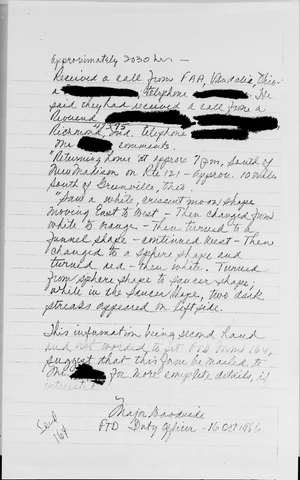 Approximately 2030 hrs —
Received a call from FAA, Vandalia, Ohio -
a telephone He
said they had received a call from a
Reverend
Richmond, Ind. telephone
Mr comments.
"Returning home at approx 7 pm, South of
New Madison on Rte 121 - approx. 10 miles
South of Greenville, this.
"Saw a white, cresent moon shape
moving East to West - Then changed from
white to orange - then turned to a
funnel shape - continued West - Then
changed to a sphere shape and
turned red - then white. Turned
from sphere shape to saucer shape;
while in the saucer shape, two dark
streaks appeared on left side.
This information being second hand
and not worded to fit FTD Form 164,
suggest that this form be mailed to
Mr for more complete details, if
interested
Major
FTD Duty Officer - 16 Oct 1966
Send
164